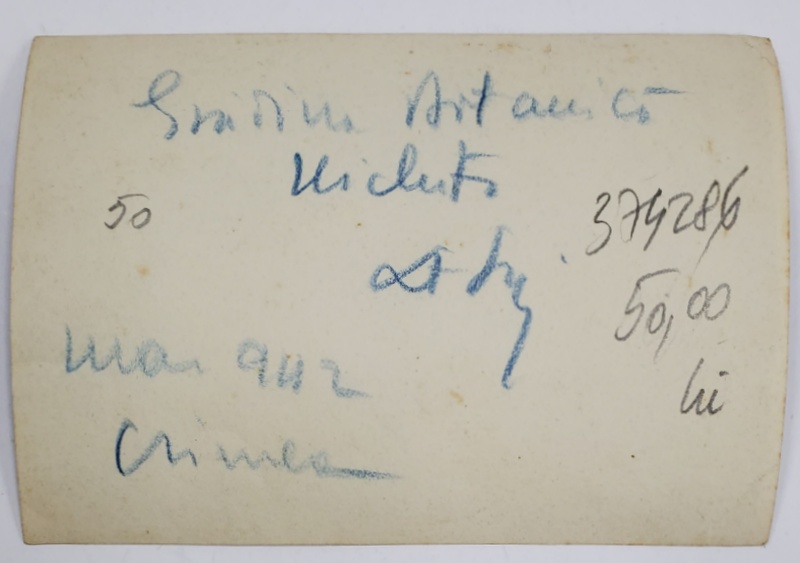 Grădina Botanică
Nichita
50
374286
50,00
lei
Mai 942
Crimea